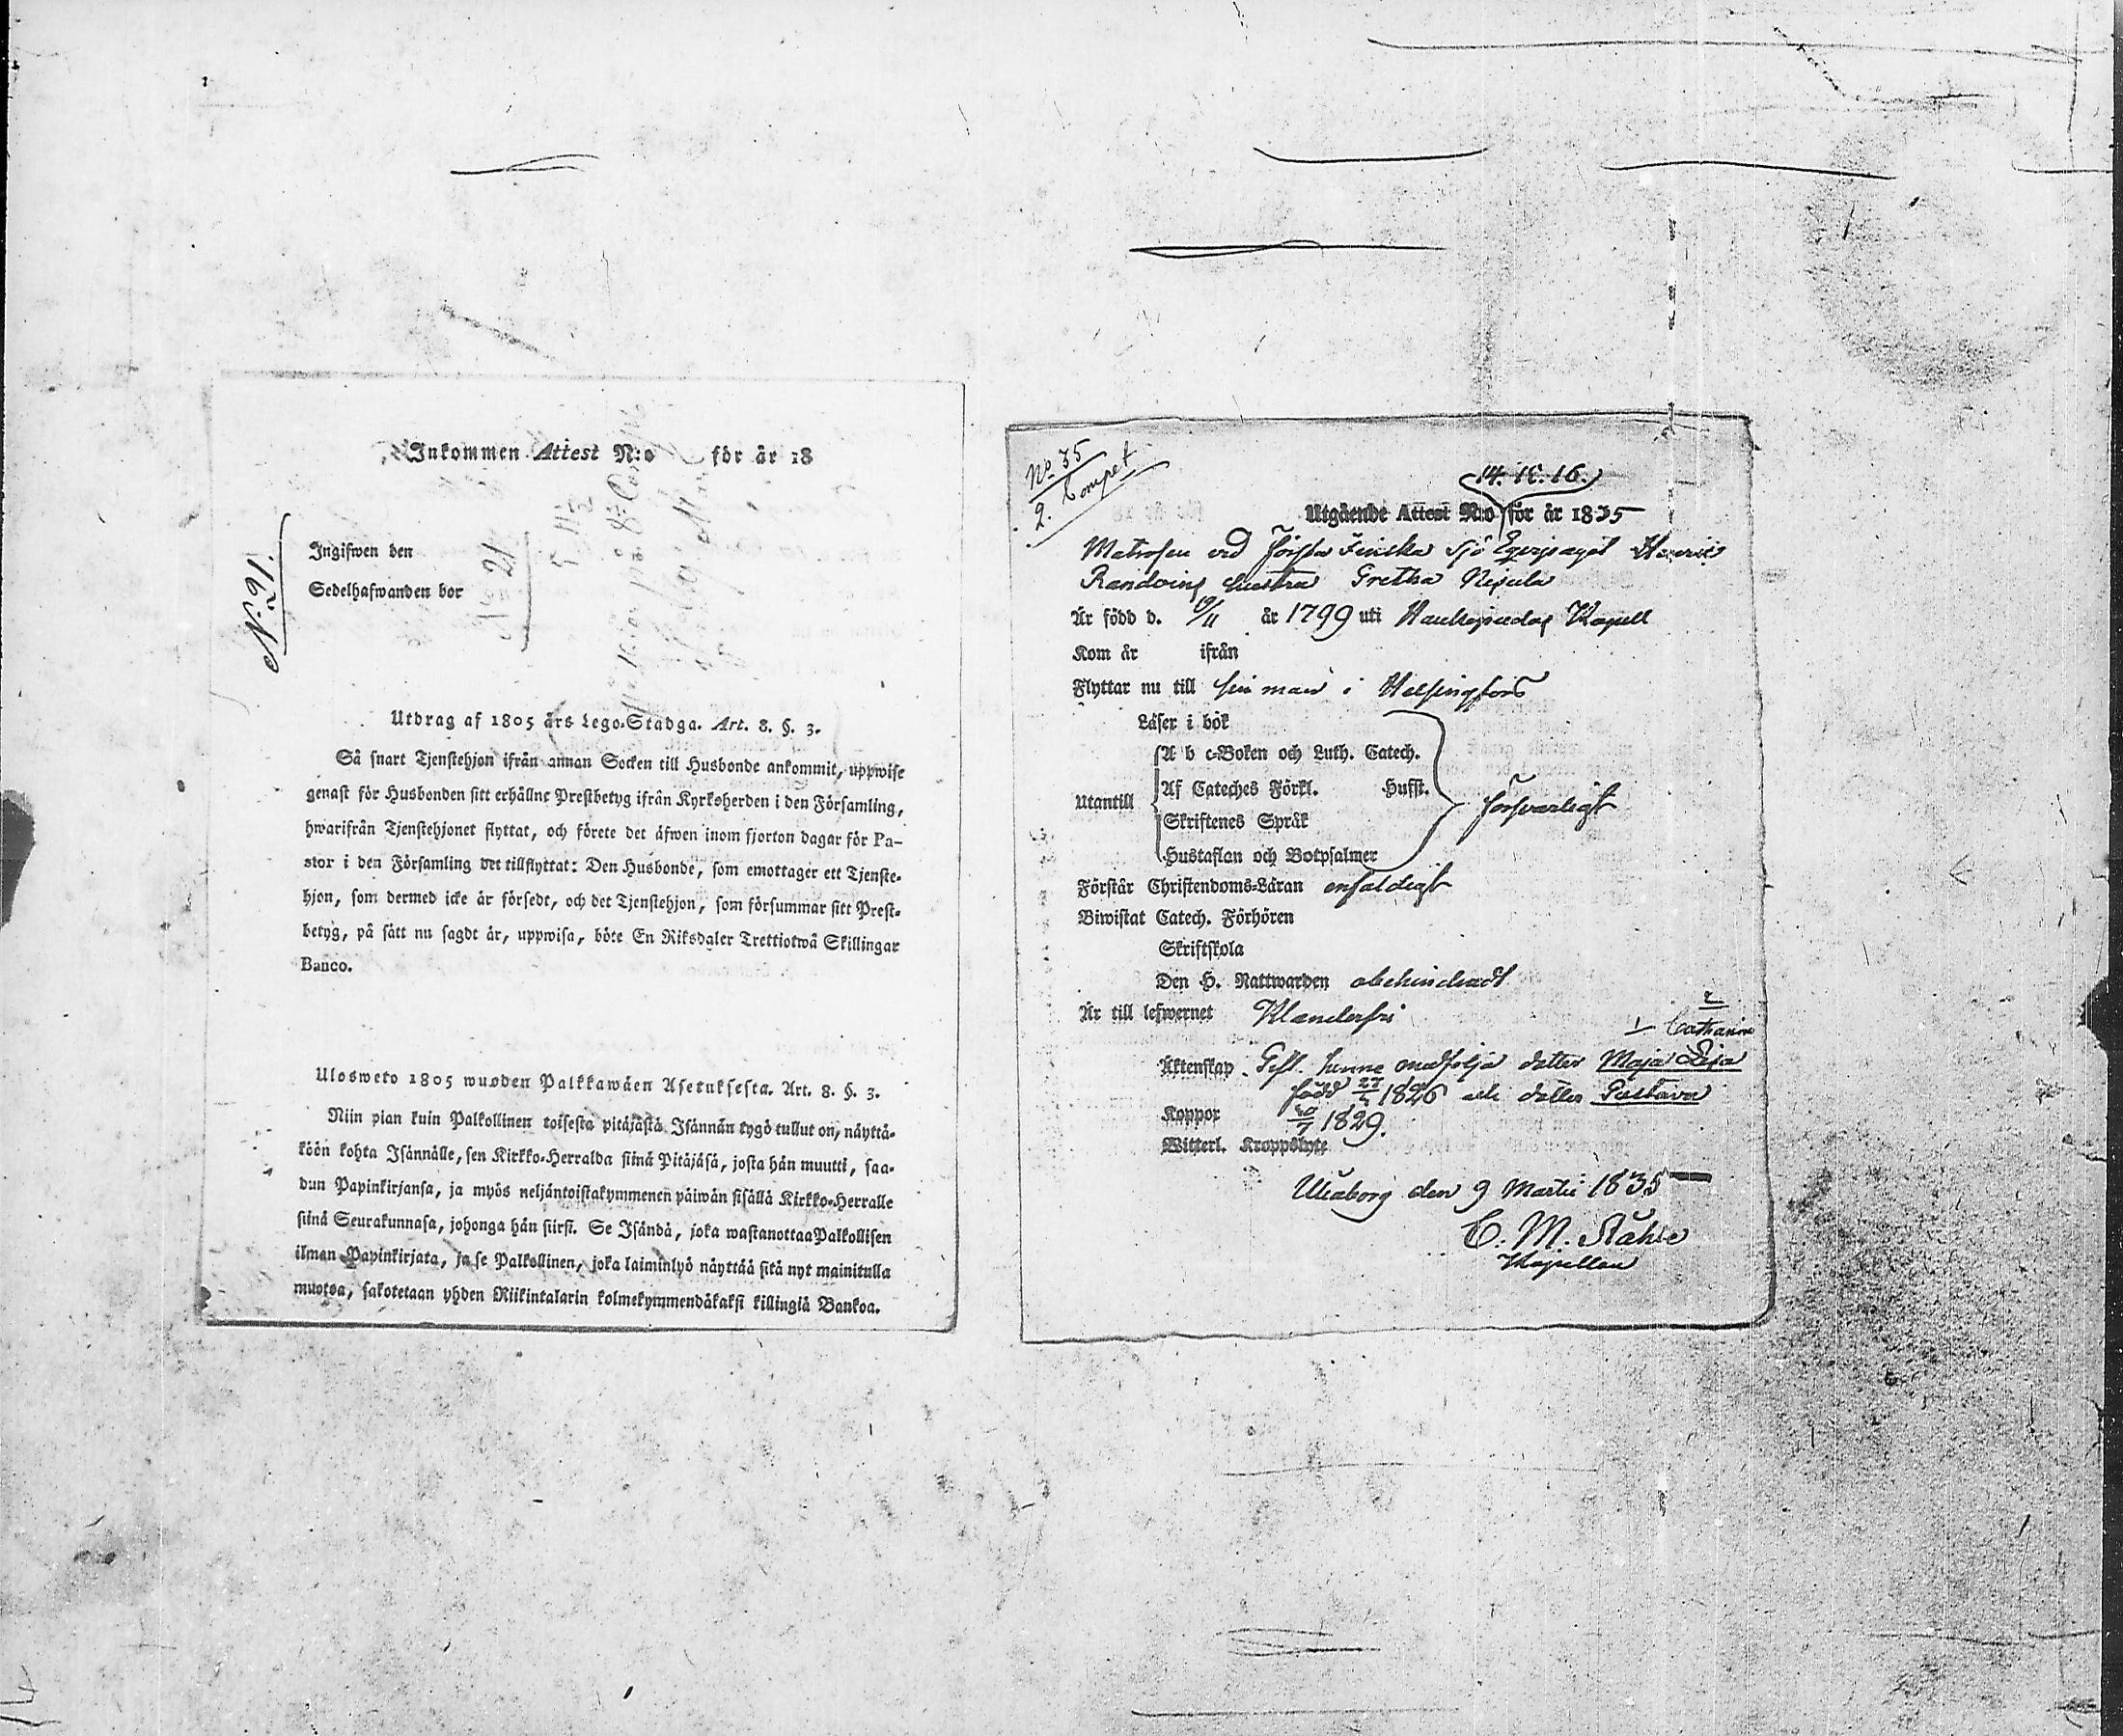 Inkommen Attest N:o för år 18
N. 21.
Ingifwen den
Sedelhafwanden bor
No 21
Utdrag af 1805 års Lego-Stadga. Art. 8. §. 3.
Så snart Tjenstehjon ifrån annan Socken till Husbonde ankommit, uppwise
genast för Husbonden sitt erhållne Prestbetyg ifrån Kyrkoherden i den Församling,
hwarifrån Tjenstehjonet flyttat, och förete det äfwen inom fjorton dagar för Pa-
stor i den Församling det tillflyttat: Den Husbonde, som emottager ett Tjenste-
hjon, som dermed icke är försedt, och det Tjenstehjon, som försummar sitt Prest-
betyg, på sätt nu sagdt är, uppwisa, böte En Riksdaler Trettiotwå Skillingar
Banco.
Ulosweto 1805 wuoden Palkkawäen Asetuksesta. Art. 8. §. 3.
Niin pian kuin Palkollinen toisesta pitäjästä Isännän tygö tullut on, näyttä-
köön kohta Isännälle, sen Kirkko-Herralda siinä Pitäjäsä, josta hän muutti, saa-
dun Papinkirjansa, ja myös neljäntoistakymmenen päiwän sisällä Kirkko-Herralle
siinä Seurakunnasa, johonga hän siirsi. Se Isändä, joka wastanottaa Palkollisen
ilman Papinkirjata, ja se Palkollinen, joka laiminlyö näyttää sitä nyt mainitulla
muotoa, sakotetaan yhden Riikintalarin kolmekymmendäkaksi killingiä Bankoa.
No 35
2. Compet
14. 15. 16.
Utgående Attest N:o för år 1835
Matrosen vid Första Finska Sjö Equipaget Henric
Randoins hustru Gretha Nissula
Är född d. 19/11 år 1799 uti Haukipudas Kapell
Kom år ifrån
Flyttar nu till sin man i Helsingfors
Läser i bok
A b c-Boken och Luth. Catech.
Utantill Af Cateches Förkl. Hufst.
Skriftenes Språk
Hustaflan och Botpsalmer
försvarligt
Förstår Christendoms-Läran enfaldigt
Biwistat Catech. Förhören
Skriftskola
Den H. Nattwarden obehindradt
Är till lefwernet Klanderfri
1 2 Catharina
Äktenskap Gift. henne medfölja dotter Maja Lisa
född 1826 och dotter Gustava
Koppor 1829.
Witterl. Kroppslyte
Uleåborg den 9 Martii 1835
C. M. Ståhle
Kapellan